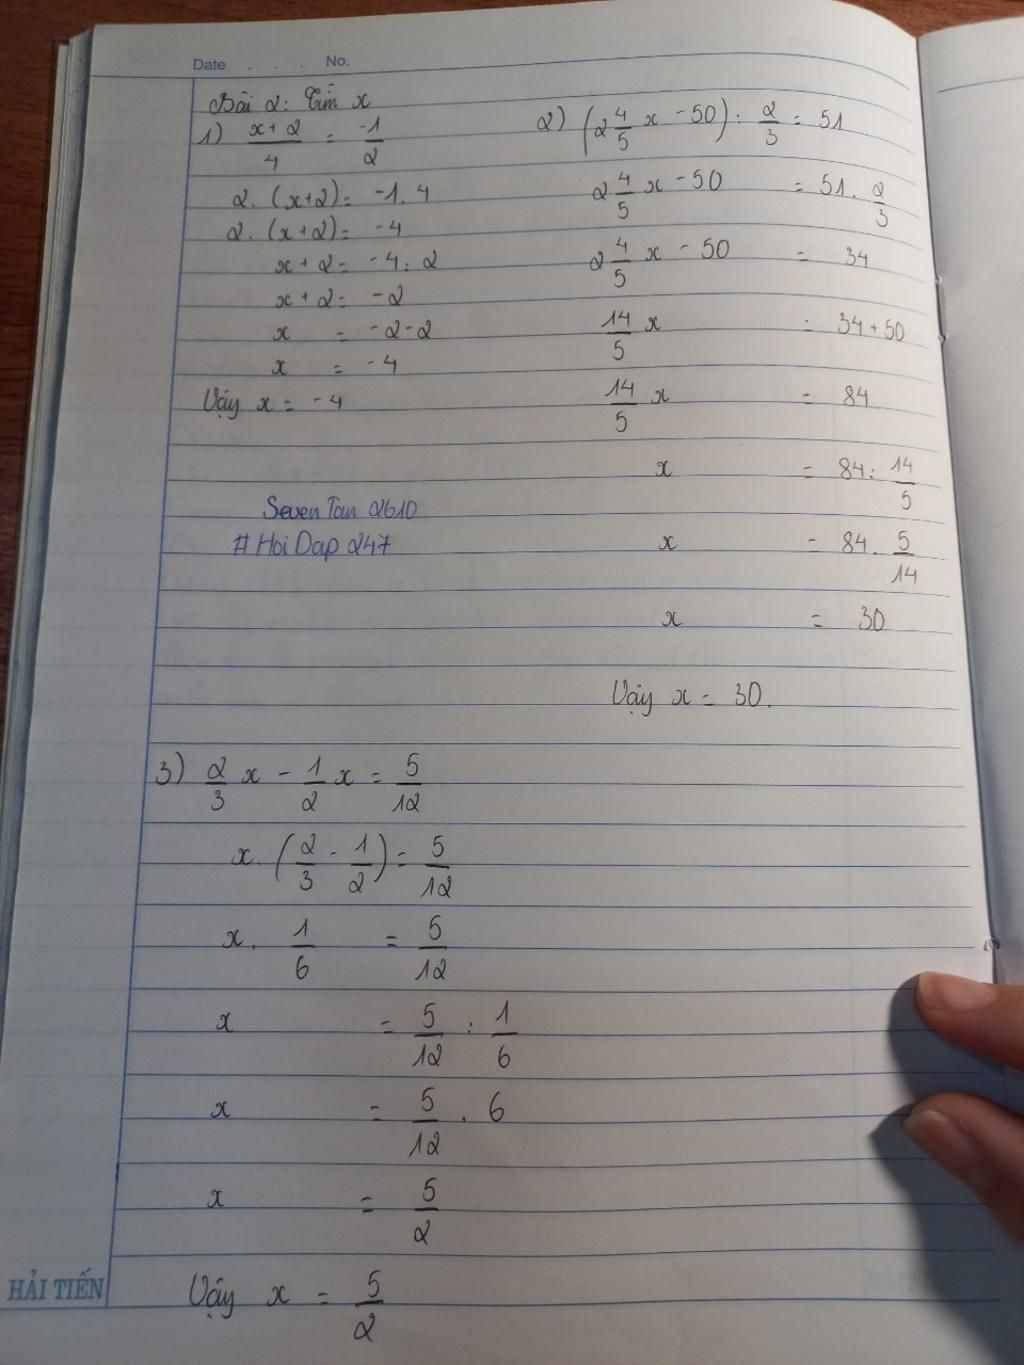 Date . . . No.
Bài 2: Tìm x
1) \frac{x+2}{4} = \frac{-1}{2}
2.(x+2) = -1.4
2.(x+2) = -4
x+2 = -4:2
x+2 = -2
x = -2-2
x = -4
Vậy x = -4
SevenTan2610
#HoiDap247
2) (2\frac{4}{5}x - 50) : \frac{2}{3} = 51
2\frac{4}{5}x - 50 = 51.\frac{2}{3}
2\frac{4}{5}x - 50 = 34
\frac{14}{5}x = 34+50
\frac{14}{5}x = 84
x = 84:\frac{14}{5}
x = 84.\frac{5}{14}
x = 30
Vậy x = 30.
3) \frac{2}{3}x - \frac{1}{2}x = \frac{5}{12}
x.(\frac{2}{3} - \frac{1}{2}) = \frac{5}{12}
x.\frac{1}{6} = \frac{5}{12}
x = \frac{5}{12} : \frac{1}{6}
x = \frac{5}{12} . 6
x = \frac{5}{2}
Vậy x = \frac{5}{2}
HẢI TIẾN